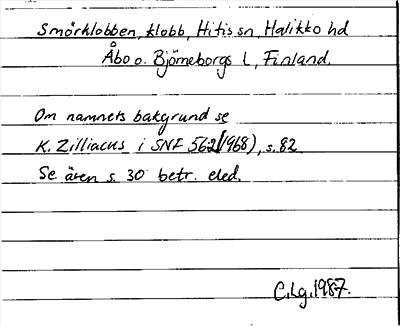 Smörklobben, klobb, Hitis sn, Halikko hd
Åbo o. Björneborgs l, Finland.
Om namnets bakgrund se
K. Zilliacus i SNF 56(1968), s. 82.
Se även s. 30 betr. eled.
C.Lg. 1987.